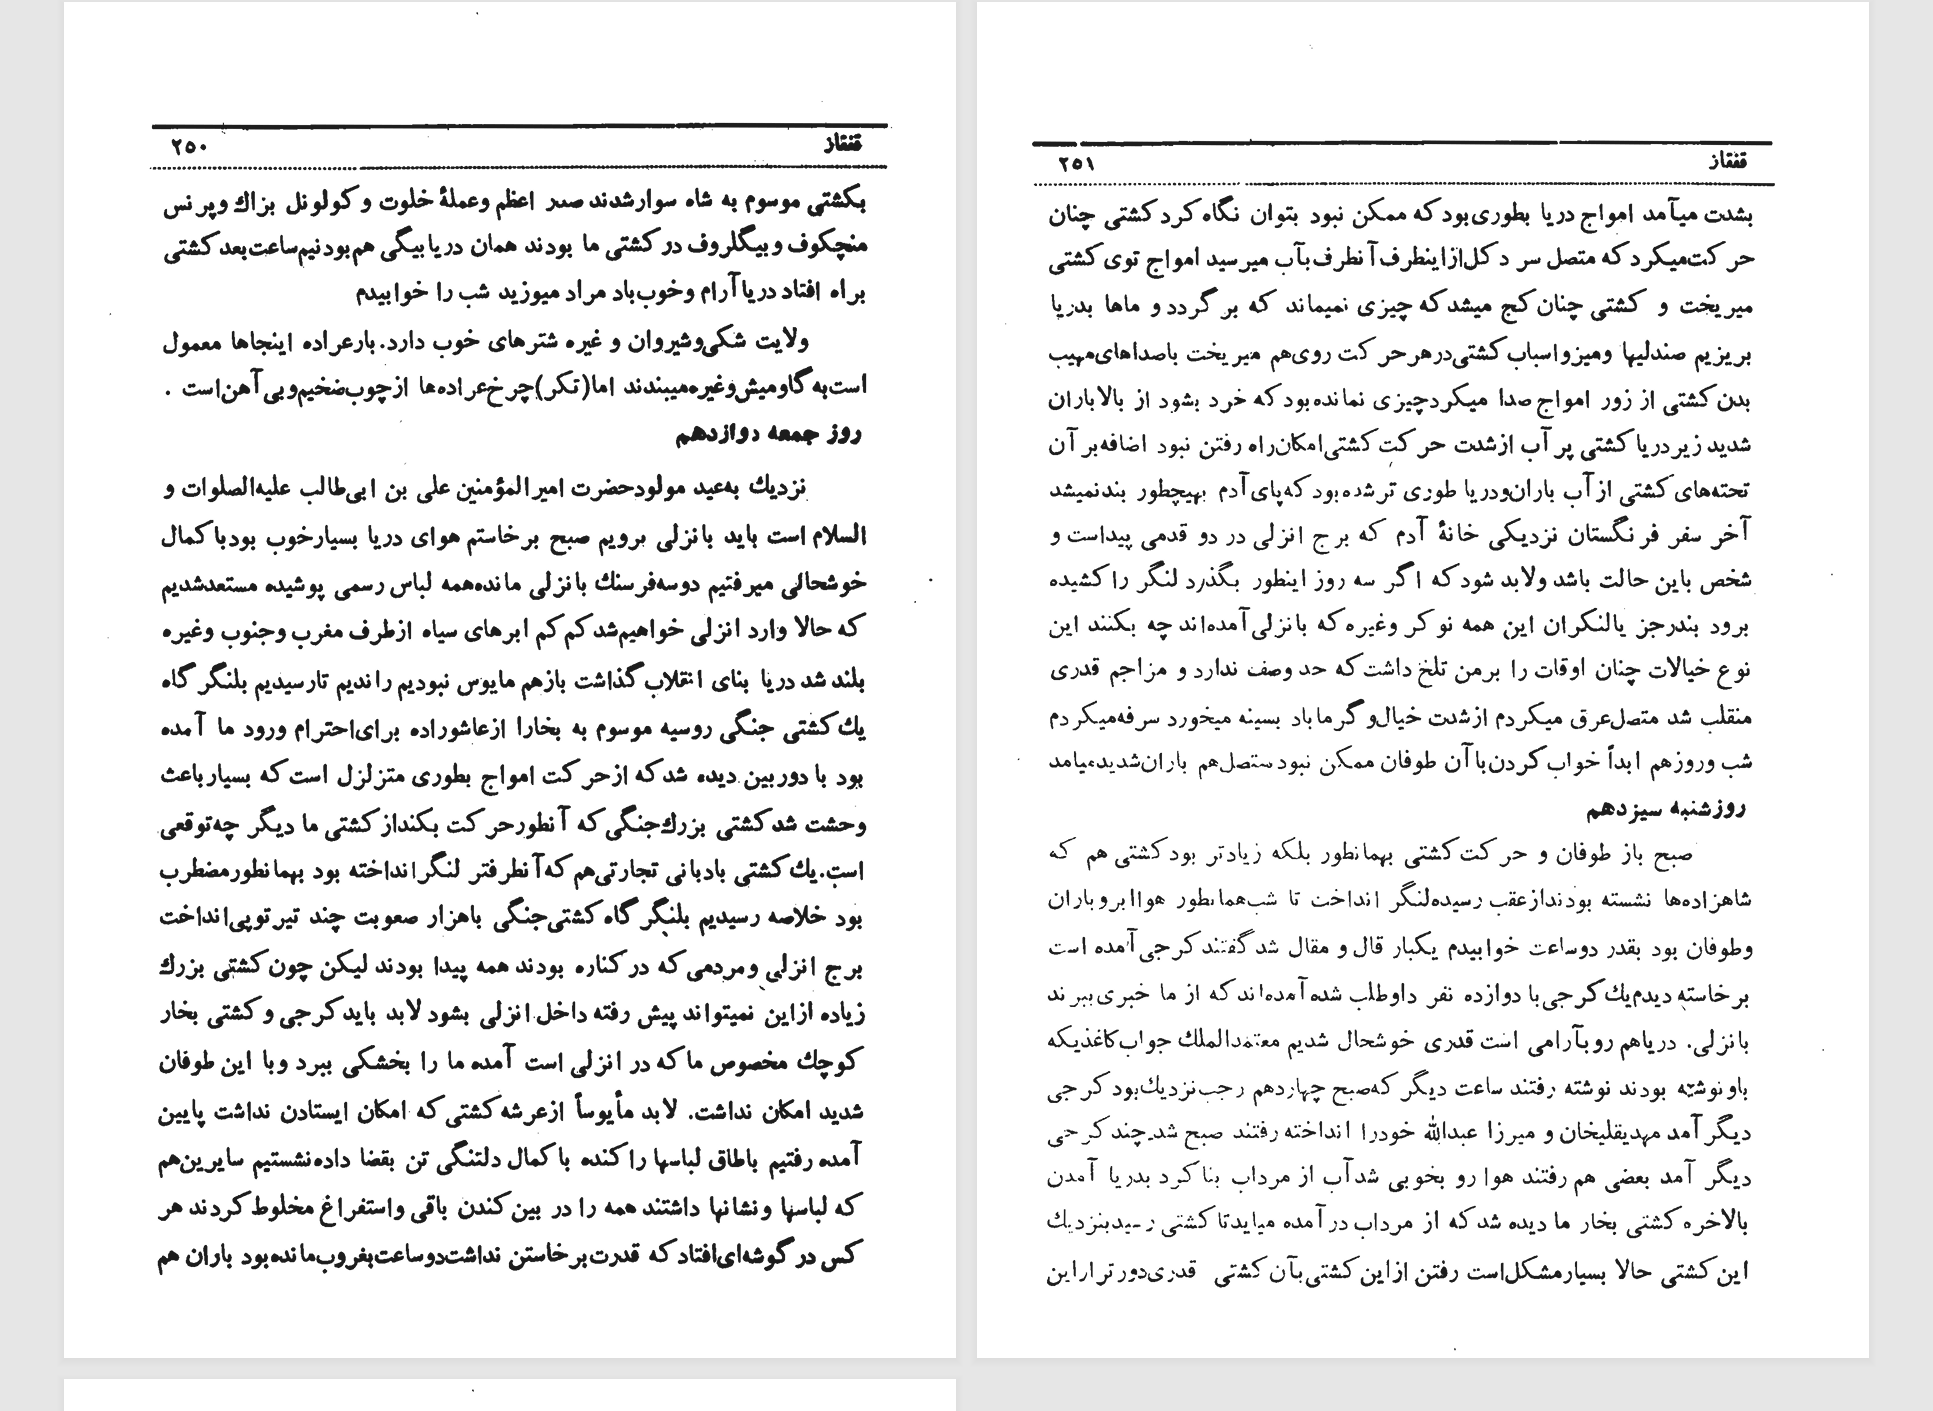 قفقاز ۲۵۰
بکشتی موسوم به شاه سوارشدند صدر اعظم وعملهٔ خلوت و کولونل بزاك وپرنس
منچکوف وبیگلروف در کشتی ما بودند همان دریا بیگی هم بود نیم ساعت بعد کشتی
براه افتاد دریا آرام وخوب باد مراد میوزید شب را خوابیدم
ولایت شکی وشیروان و غیره شترهای خوب دارد. بارعراده اینجاها معمول
است به گاومیش وغیره میبندند اما (تکر) چرخ عراده ها از چوب ضخیم و بی آهن است .
روز جمعه دوازدهم
نزدیك به عید مولود حضرت امیر المؤمنین علی بن ابی طالب علیه الصلوات و
السلام است باید بانزلی برویم صبح برخاستم هوای دریا بسیارخوب بود با کمال
خوشحالی میرفتیم دوسه فرسنك بانزلی مانده همه لباس رسمی پوشیده مستعدشدیم
که حالا وارد انزلی خواهیم شد کم کم ابرهای سیاه ازطرف مغرب وجنوب وغیره
بلند شد دریا بنای انقلاب گذاشت بازهم مایوس نبودیم راندیم تارسیدیم بلنگر گاه
یك کشتی جنگی روسیه موسوم به بخارا ازعاشوراده برای احترام ورود ما آمده
بود با دوربین دیده شد که ازحرکت امواج بطوری متزلزل است که بسیارباعث
وحشت شد کشتی بزرك جنگی که آنطورحرکت بکنداز کشتی ما دیگر چه توقعی
است. یك کشتی بادبانی تجارتی هم که آنطرفتر لنگر انداخته بود بهمانطورمضطرب
بود خلاصه رسیدیم بلنگر گاه کشتی جنگی باهزار صعوبت چند تیر توپی انداخت
برج انزلی ومردمی که در کناره بودند همه پیدا بودند لیکن چون کشتی بزرك
زیاده ازاین نمیتواند پیش رفته داخل انزلی بشود لابد باید کرجی و کشتی بخار
کوچك مخصوص ما که در انزلی است آمده ما را بخشکی ببرد وبا این طوفان
شدید امکان نداشت. لابد مأیوساً ازعرشه کشتی که امکان ایستادن نداشت پایین
آمده رفتیم باطاق لباسها را کنده با کمال دلتنگی تن بقضا داده نشستیم سایرین هم
که لباسها ونشانها داشتند همه را در بین کندن باقی واستفراغ مخلوط کردند هر
کس در گوشه ای افتاد که قدرت برخاستن نداشت دوساعت بغروب مانده بود باران هم
قفقاز ۲۵۱
بشدت میآمد امواج دریا بطوری بود که ممکن نبود بتوان نگاه کرد کشتی چنان
حرکت میکرد که متصل سر دکل از اینطرف آنطرف بآب میرسید امواج توی کشتی
میریخت و کشتی چنان کج میشد که چیزی نمیماند که بر گردد و ماها بدریا
بریزیم صندلیها ومیز واسباب کشتی درهرحرکت روی هم میریخت باصداهای مهیب
بدن کشتی از زور امواج صدا میکرد چیزی نمانده بود که خرد بشود از بالا باران
شدید زیر دریا کشتی پر آب ازشدت حرکت کشتی امکان راه رفتن نبود اضافه بر آن
تخته های کشتی از آب باران ودریا طوری تر شده بود که پای آدم بهیچطور بند نمیشد
آخر سفر فرنگستان نزدیکی خانهٔ آدم که برج انزلی در دو قدمی پیداست و
شخص باین حالت باشد ولابد شود که اگر سه روز اینطور بگذرد لنگر را کشیده
برود بندرجز یالنکران این همه نوکر وغیره که بانزلی آمده اند چه بکنند این
نوع خیالات چنان اوقات را برمن تلخ داشت که حد وصف ندارد و مزاجم قدری
منقلب شد متصل عرق میکردم ازشدت خیال و گرما باد بسینه میخورد سرفه میکردم
شب وروزهم ابداً خواب کردن با آن طوفان ممکن نبود متصل هم باران شدید میامد
روزشنبه سیزدهم
صبح باز طوفان و حرکت کشتی بهمانطور بلکه زیادتر بود کشتی هم که
شاهزاده ها نشسته بودند ازعقب رسیده لنگر انداخت تا شب همانطور هوا ابر وباران
وطوفان بود بقدر دوساعت خوابیدم یکبار قال و مقال شد گفتند کرجی آمده است
برخاسته دیدم یك کرجی با دوازده نفر داوطلب شده آمده اند که از ما خبری ببرند
بانزلی. دریاهم روبآرامی است قدری خوشحال شدیم معتمدالملك جواب کاغذیکه
باو نوشته بودند نوشته رفتند ساعت دیگر که صبح چهاردهم رجب نزدیك بود کرجی
دیگر آمد مهدیقلیخان و میرزا عبدالله خودرا انداخته رفتند صبح شد. چند کرجی
دیگر آمد بعضی هم رفتند هوا رو بخوبی شد آب از مرداب بنا کرد بدریا آمدن
بالاخره کشتی بخار ما دیده شد که از مرداب در آمده میاید تا کشتی رسید بنزدیك
این کشتی حالا بسیارمشکل است رفتن از این کشتی بآن کشتی قدری دورتر از این